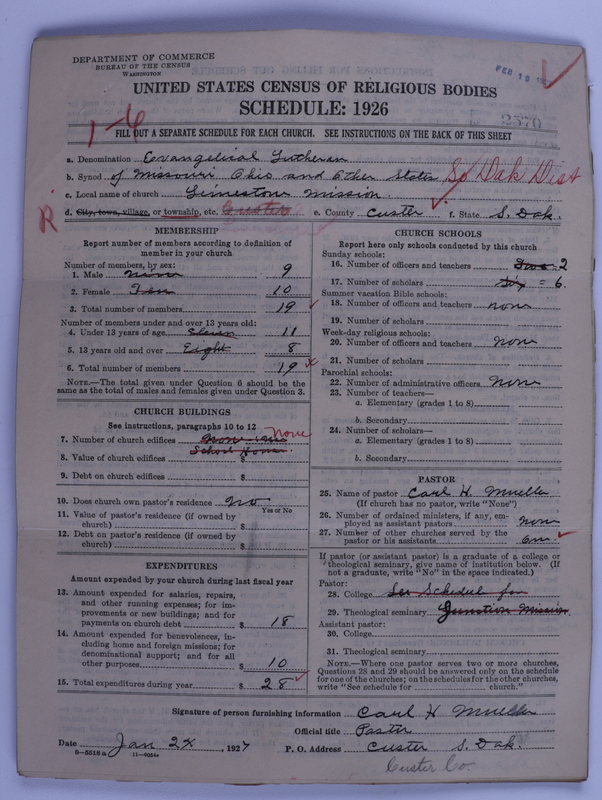 DEPARTMENT OF COMMERCE
BUREAU OF THE CENSUS
WASHINGTON
FEB 10
UNITED STATES CENSUS OF RELIGIOUS BODIES
SCHEDULE: 1926
2570
1-6
FILL OUT A SEPARATE SCHEDULE FOR EACH CHURCH. SEE INSTRUCTIONS ON THE BACK OF THIS SHEET
a. Denomination Evangelical Lutheran
b. Synod of Missouri Ohio and Other States So Dak Dist
c. Local name of church Limestone Mission
R
d. City, town, village, or township, etc. Custer e. County Custer f. State S. Dak.
MEMBERSHIP
Report number of members according to definition of
member in your church
Number of members, by sex:
1. Male 9
2. Female Ten 10
3. Total number of members 19
Number of members under and over 13 years old:
4. Under 13 years of age Eleven 11
5. 13 years old and over Eight 8
6. Total number of members 19
NOTE.—The total given under Question 6 should be the
same as the total of males and females given under Question 3.
CHURCH BUILDINGS
See instructions, paragraphs 10 to 12
7. Number of church edifices None
School House
8. Value of church edifices $
9. Debt on church edifices $
10. Does church own pastor's residence No
Yes or No
11. Value of pastor's residence (if owned by
church) $
12. Debt on pastor's residence (if owned by
church) $
EXPENDITURES
Amount expended by your church during last fiscal year
13. Amount expended for salaries, repairs,
and other running expenses; for im-
provements or new buildings; and for
payments on church debt $ 18
14. Amount expended for benevolences, in-
cluding home and foreign missions; for
denominational support; and for all
other purposes $ 10
15. Total expenditures during year $ 28
CHURCH SCHOOLS
Report here only schools conducted by this church
Sunday schools:
16. Number of officers and teachers Two 2
17. Number of scholars Six = 6.
Summer vacation Bible schools:
18. Number of officers and teachers none
19. Number of scholars
Week-day religious schools:
20. Number of officers and teachers None
21. Number of scholars
Parochial schools:
22. Number of administrative officers None
23. Number of teachers—
a. Elementary (grades 1 to 8)
b. Secondary
24. Number of scholars—
a. Elementary (grades 1 to 8)
b. Secondary
PASTOR
25. Name of pastor Carl H. Mueller
(If church has no pastor, write "None")
26. Number of ordained ministers, if any, em-
ployed as assistant pastors none
27. Number of other churches served by the
pastor or his assistants
If pastor (or assistant pastor) is a graduate of a college or
theological seminary, give name of institution below. (If
not a graduate, write "No" in the space indicated.)
Pastor:
28. College See Schedule for
29. Theological seminary Junction Mission
Assistant pastor:
30. College
31. Theological seminary
NOTE.—Where one pastor serves two or more churches,
Questions 28 and 29 should be answered only on the schedule
for one of the churches; on the schedules for the other churches,
write "See schedule for church."
Signature of person furnishing information Carl H Mueller
Official title Pastor
Date Jan 24, 1927 P. O. Address Custer S. Dak.
8-5518a 11-9054a
Custer Co.